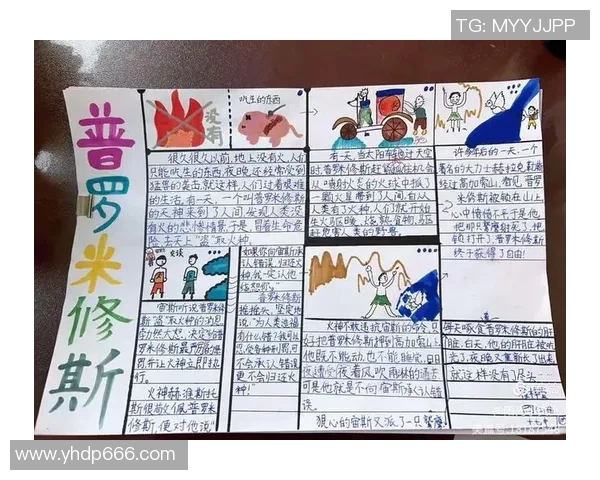 TG: MYYJJPP
普罗米修斯
没有
吃生的东西
很久很久以前,地上没有火,人们
只能吃生的东西,夜晚还经常受到
猛兽的袭击,就这样,人们过着艰难
的生活。有一天,一个叫普罗米修斯
的天神来到了人间,发现人类没
有火的悲惨情景,于是,冒着生命危
险,去天上"盗"取火种。
有一天,当太阳车
普罗米修斯
人类有了火种,人们就开始
生火取暖、烧熟食物、驱
赶危害人类的野兽。
许多年后的一天,一个
著名的大力士赫拉克
经过高加索山,看见普罗
米修斯被锁在山上,
心中愤愤不
锁打开了,普罗米修斯
终于获得了自由!
交谈
宙斯听说普罗米
修斯"盗"取火种的消息,
普罗米修斯最严厉的
罚,并让火神立即执
行。
火神赫淮斯托
斯很敬佩普罗米
修斯,便对他说
如果你向宙斯承
认错误,归还火
种,我一定让他
饶恕你。"
普罗米修斯
摇摇头,坚定地
说:"为人类造福,
有什么错?我可以
忍受各种刑罚,可
不会承认错误,
更不会归还火
种!"
火神不敢违抗宙斯的命令,只
好把普罗米修斯押到高加索山上。
他既不能动,也不能睡觉,日日
夜夜遭受着风吹雨林的痛苦
可是他就是不向宙斯承认错
误。
狠心的宙斯又派了一只鹫鹰
每天啄食普罗米修斯的肝
脏。白天,他的肝脏被吃
光了,夜晚又重新长了出来
就这样没有了尽头
www.yhdp666.com